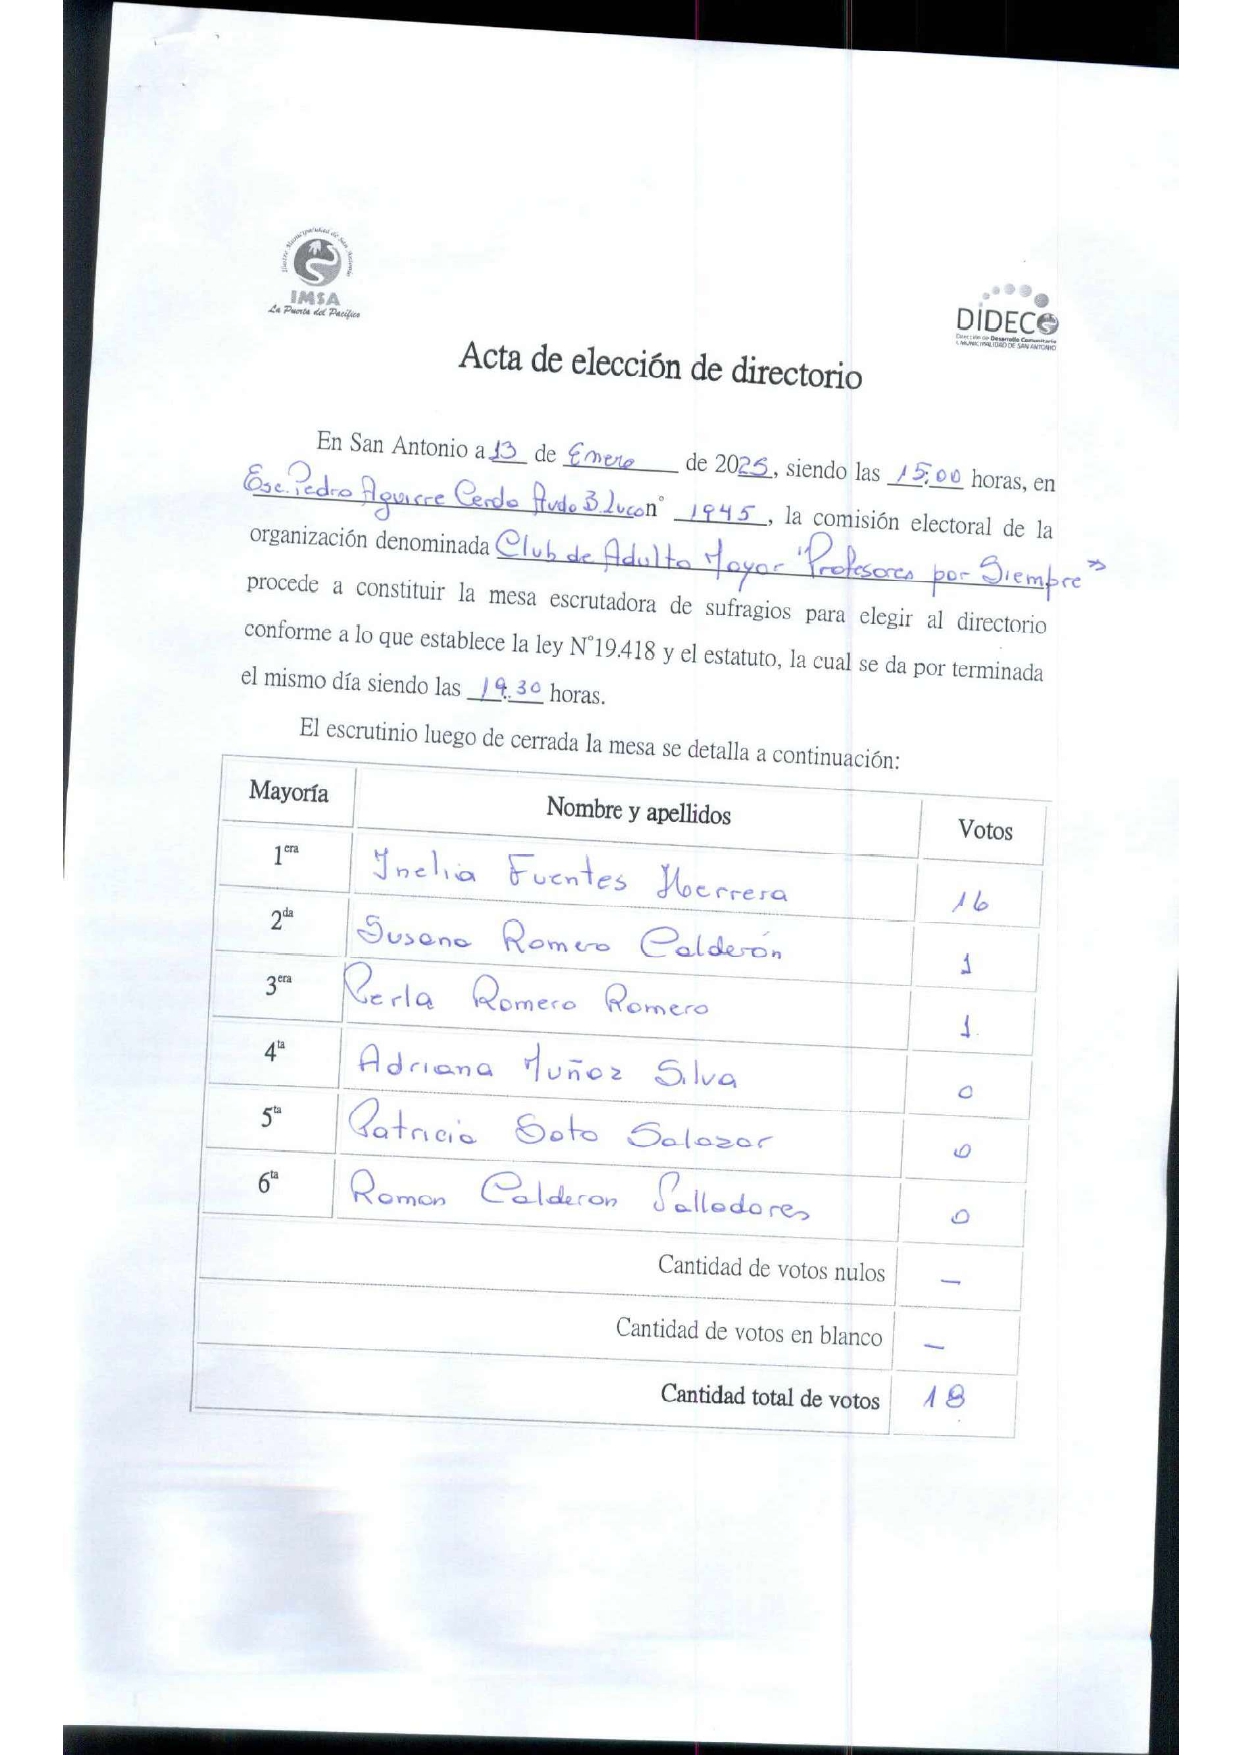 Ilustre Municipalidad de San Antonio
IMSA
La Puerta del Pacífico
DIDECO
Dirección de Desarrollo Comunitario
I. MUNICIPALIDAD DE SAN ANTONIO
Acta de elección de directorio
En San Antonio a 13 de Enero de 2025, siendo las 15:00 horas, en
Esc. Pedro Aguirre Cerda Avda B. Luco n° 1945, la comisión electoral de la
organización denominada Club de Adulto Mayor "Profesores por Siempre"
procede a constituir la mesa escrutadora de sufragios para elegir al directorio
conforme a lo que establece la ley N°19.418 y el estatuto, la cual se da por terminada
el mismo día siendo las 19:30 horas.
El escrutinio luego de cerrada la mesa se detalla a continuación:
Mayoría Nombre y apellidos Votos
1era Inelia Fuentes Herrera 16
2da Susana Romero Calderón 1
3era Perla Romero Romero 1
4ta Adriana Muñoz Silva 0
5ta Patricia Soto Salazar 0
6ta Roman Calderon Valladores 0
Cantidad de votos nulos –
Cantidad de votos en blanco –
Cantidad total de votos 18